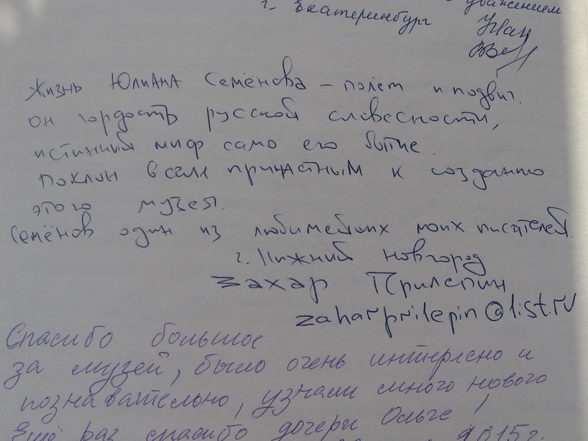 уважением
г. Екатеринбург
Жизнь Юлиана Семёнова – полёт и подвиг.
он гордость русской словесности,
истинный миф само его бытие.
Поклон всем причастным к созданию
этого музея.
Семёнов один из любимейших моих писателей
г. Нижний новгород
Захар Прилепин
zaharprilepin@list.ru
Спасибо большое
за музей, было очень интересно и
познавательно, узнали много нового
Ещё раз спасибо дочери Ольге!
2015г.